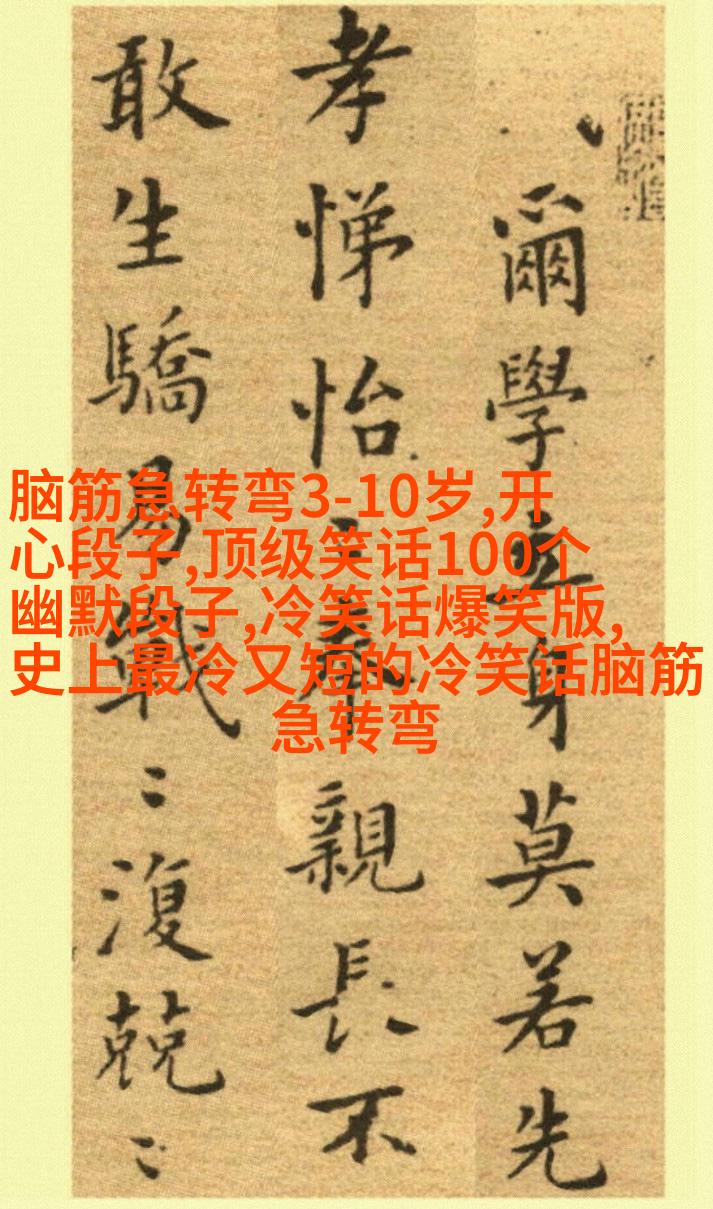 爾學立身莫若先
孝悌怡〻奉親長不
敢生驕易戰〻復兢〻
脑筋急转弯3-10岁,开
心段子,顶级笑话100个
幽默段子,冷笑话爆笑版,
史上最冷又短的冷笑话脑筋
急转弯